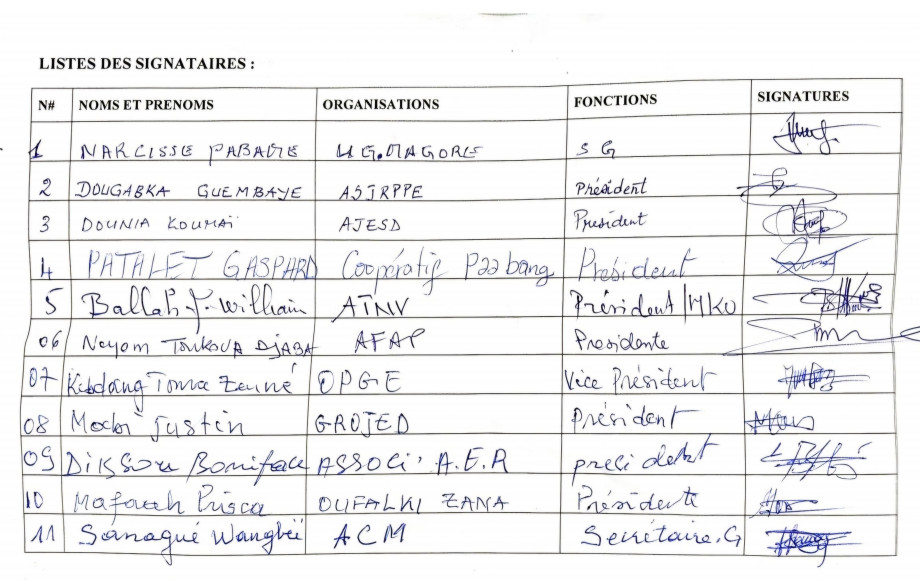 LISTES DES SIGNATAIRES :
N# NOMS ET PRENOMS ORGANISATIONS FONCTIONS SIGNATURES
1 NARCISSE PABAME U.G.MAGORE S G
2 DOUGABKA GUEMBAYE ASTRPPE Président
3 DOUNIA KOUMAÏ AJESD President
4 PATALET GASPARD Coopératif Paabang Président
5 Ballah.J.William ATNV Président/MKO
06 DJABA AFAP Presidente
07 OPGE Vice Président
08 Justin GROJED président
09 Boniface ASSOCI' A.E.R
10 Prisca OUFALKI ZANA Présidente
11 Sanagué Wangbeï ACM Secrétaire.G